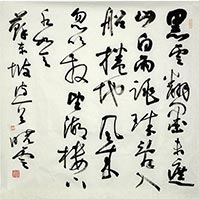 黑雲翻墨未遮
山白雨跳珠亂入
船捲地風來
忽吹散望湖樓下
水如天
蘇東坡